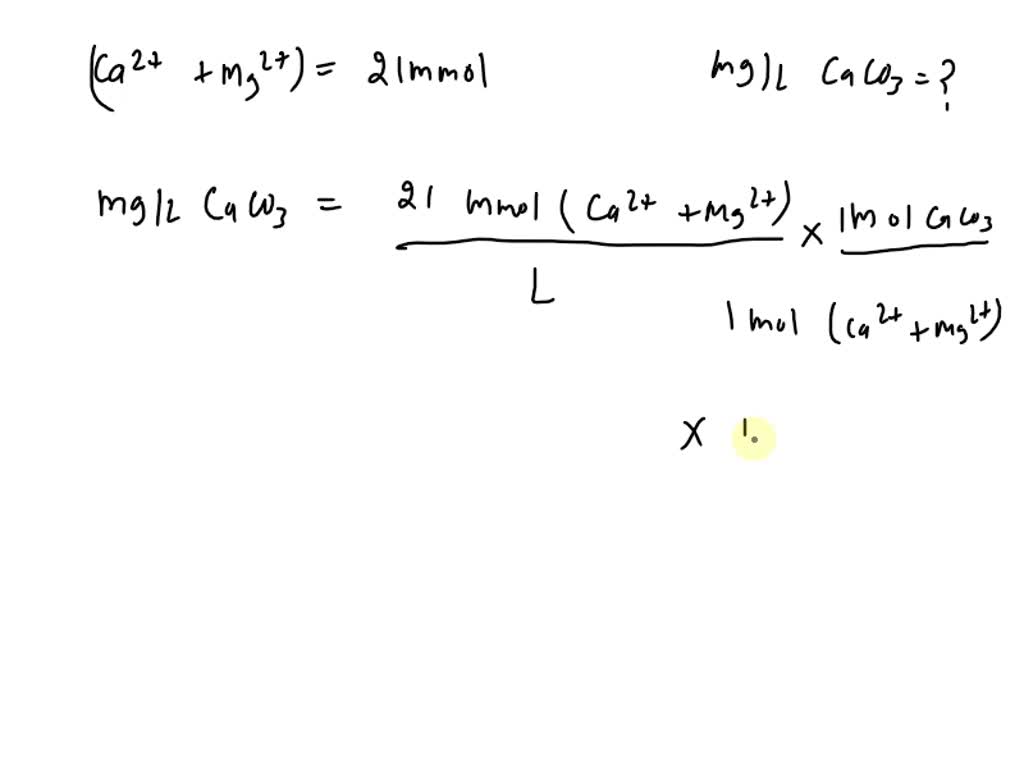 (Ca²⁺ + Mg²⁺) = 21mmol mg/L CaCO₃ = ?
mg/L CaCO₃ = 21 mmol (Ca²⁺ + Mg²⁺) × 1mol CaCO₃
L
1 mol (Ca²⁺ + Mg²⁺)
× 1